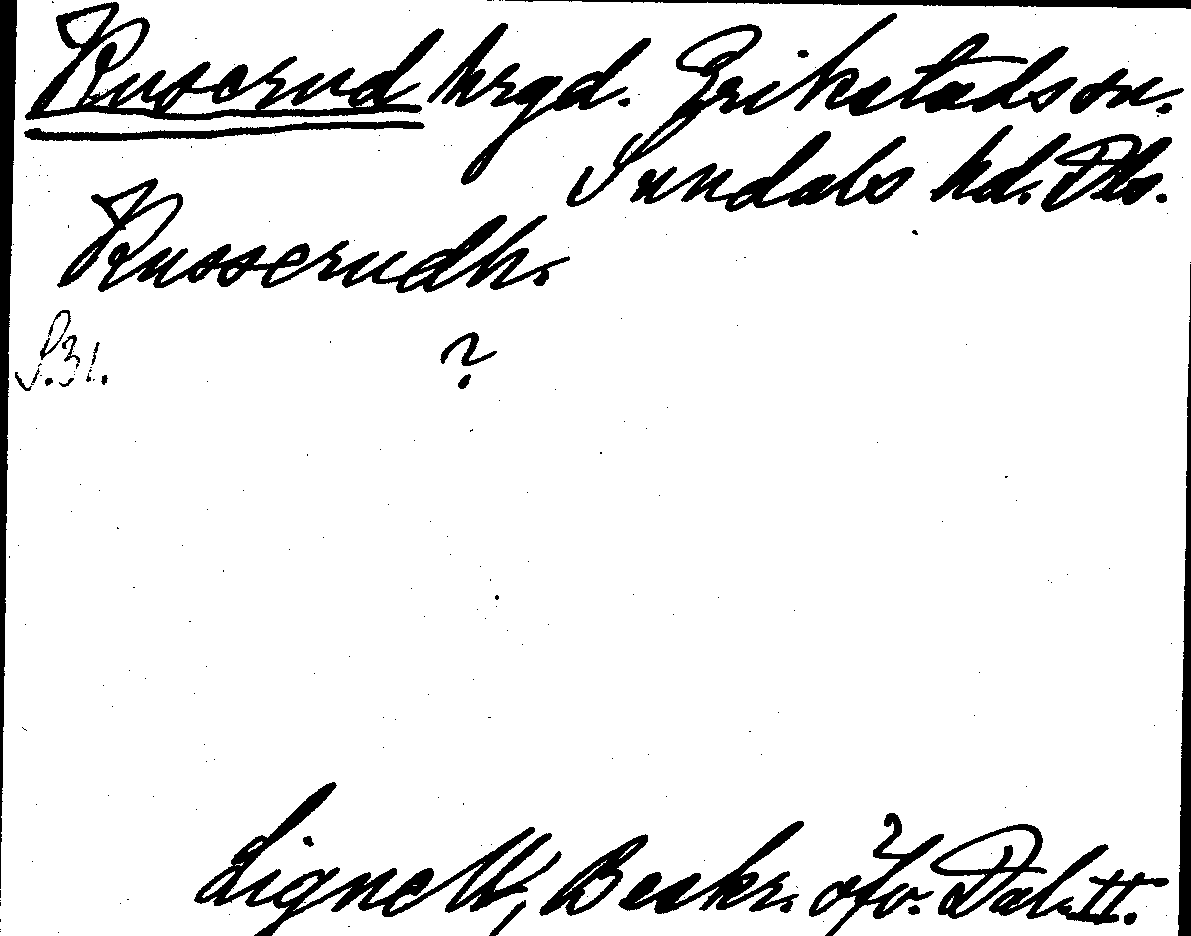 Ruserud hrgd. Erikstads sn.
Sundals hd. Dls.
Russerudh.
S. 31. ?
Lignell, Beskr. öfv. Dal. II.